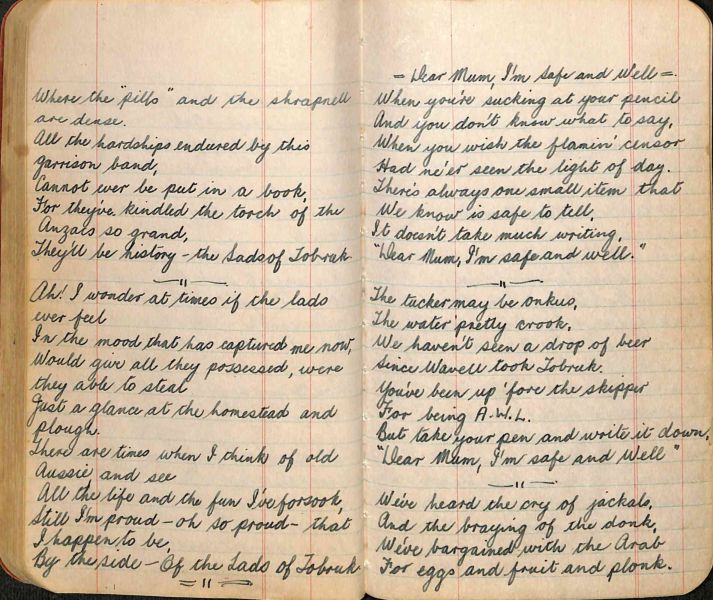 Where the "pills" and the shrapnell
are dense.
All the hardships endured by this
garrison band,
Cannot ever be put in a book,
For they've kindled the torch of the
Anzacs so grand,
They'll be history - the Lads of Tobruk
Ah! I wonder at times if the lads
ever feel
In the mood that has captured me now,
Would give all they possessed, were
they able to steal
Just a glance at the homestead and
plough.
There are times when I think of old
Aussie, and see
All the life and the fun I've forsook,
Still I'm proud - oh so proud - that
I happen to be,
By the side - Of the Lads of Tobruk
= Dear Mum, I'm safe and Well =
When you're sucking at your pencil
And you don't know what to say,
When you wish the flamin' censor
Had ne'er seen the light of day.
There's always one small item that
We know is safe to tell,
It doesn't take much writing,
"Dear Mum, I'm safe and well."
The tucker may be onkus,
The water pretty crook,
We haven't seen a drop of beer
Since Wavell took Tobruk.
You've been up 'fore the skipper
For being A.W.L.
But take your pen and write it down,
"Dear Mum, I'm safe and Well"
We've heard the cry of jackals,
And the braying of the donk,
We've bargained with the Arab
For eggs and fruit and plonk.